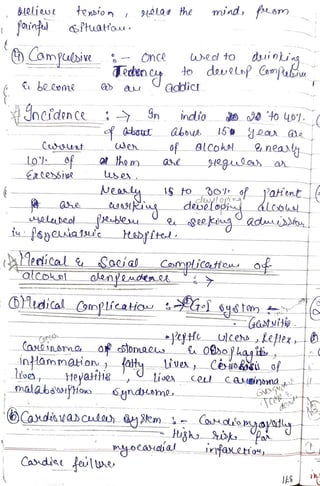 relieve tension, relax the mind, from
painful situation.
④ Compulsive :- Once used to drinking
Tendency to develop Compulsive
& become as an addict
Incidence : → In india 20 to 40%
of about above 15 year are
Current user of alcohol & nearly
10% of them are regular or
Excessive user.
Nearly 15 to 30% of patient
are developing alcohol
related problem & seeking admission
in psychiatric Hospital.
Medical & Social Complication of
alcohol dependence : →
① Medical Complication : → G.I system :-
Gastritis
peptic ulcers, Reflex,
Cancer
Carcinoma of stomach & Oesophagitis,
inflammation, fatty liver, Cirrhosis of
liver, Hepatitis, liver cell carcinoma,
malabsorption syndrome.
ⓑ Cardiovascular System :- Cardiomyopathy
High risk for
myocardial infarction,
Cardiac failure